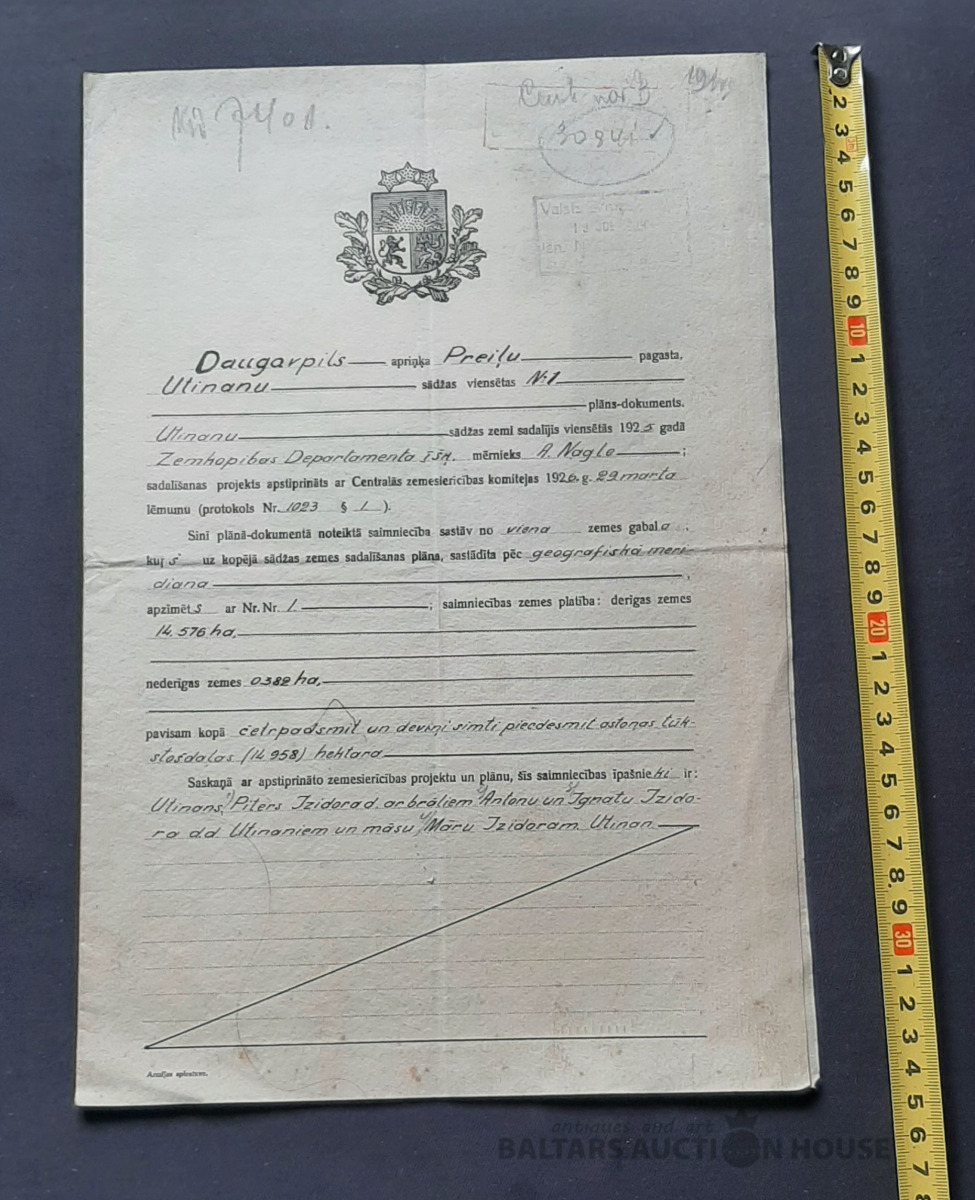 Nr 7401.
30841
Valsts
Daugavpils apriņķa Preiļu pagasta,
Utinanu sādžas viensētas №1
plāns-dokuments.
Utinanu sādžas zemi sadalījis viensētās 1925 gadā
Zemkopības Departamenta īšņ. mērnieks A. Nagle;
sadalīšanas projekts apstiprināts ar Centralās zemesierīcības komitejas 1926. g. 29 marta
lēmumu (protokols Nr. 1023 § 1).
Sini plānā-dokumentā noteiktā saimniecība sastāv no viena zemes gabala,
kuŗš uz kopējā sādžas zemes sadalīšanas plāna, sastādīta pēc geografiskā meri-
diana,
apzīmēts ar Nr. Nr. 1; saimniecības zemes platība: derīgas zemes
14.576 ha.
nederīgas zemes 0382 ha.
pavisam kopā četrpadsmit un deviņi simti piecdesmit astoņas tūk-
stošdaļas (14.958) hektara
Saskaņā ar apstiprināto zemesierīcības projektu un plānu, šīs saimniecības īpašnieki ir:
Utinans, Piters Izidora d. ar brāļiem Antonu un Ignatu Izido-
ra d.d. Utinaniem un māsu Māru Izidora m. Utinan
Armijas spiestuve.
antiques and art
BALTARS AUCTION HOUSE
2 3 4 5 6 7 8 9 10 1 2 3 4 5 6 7 8 9 20 1 2 3 4 5 6 7 8 9 30 1 2 3 4 5 6 7 8